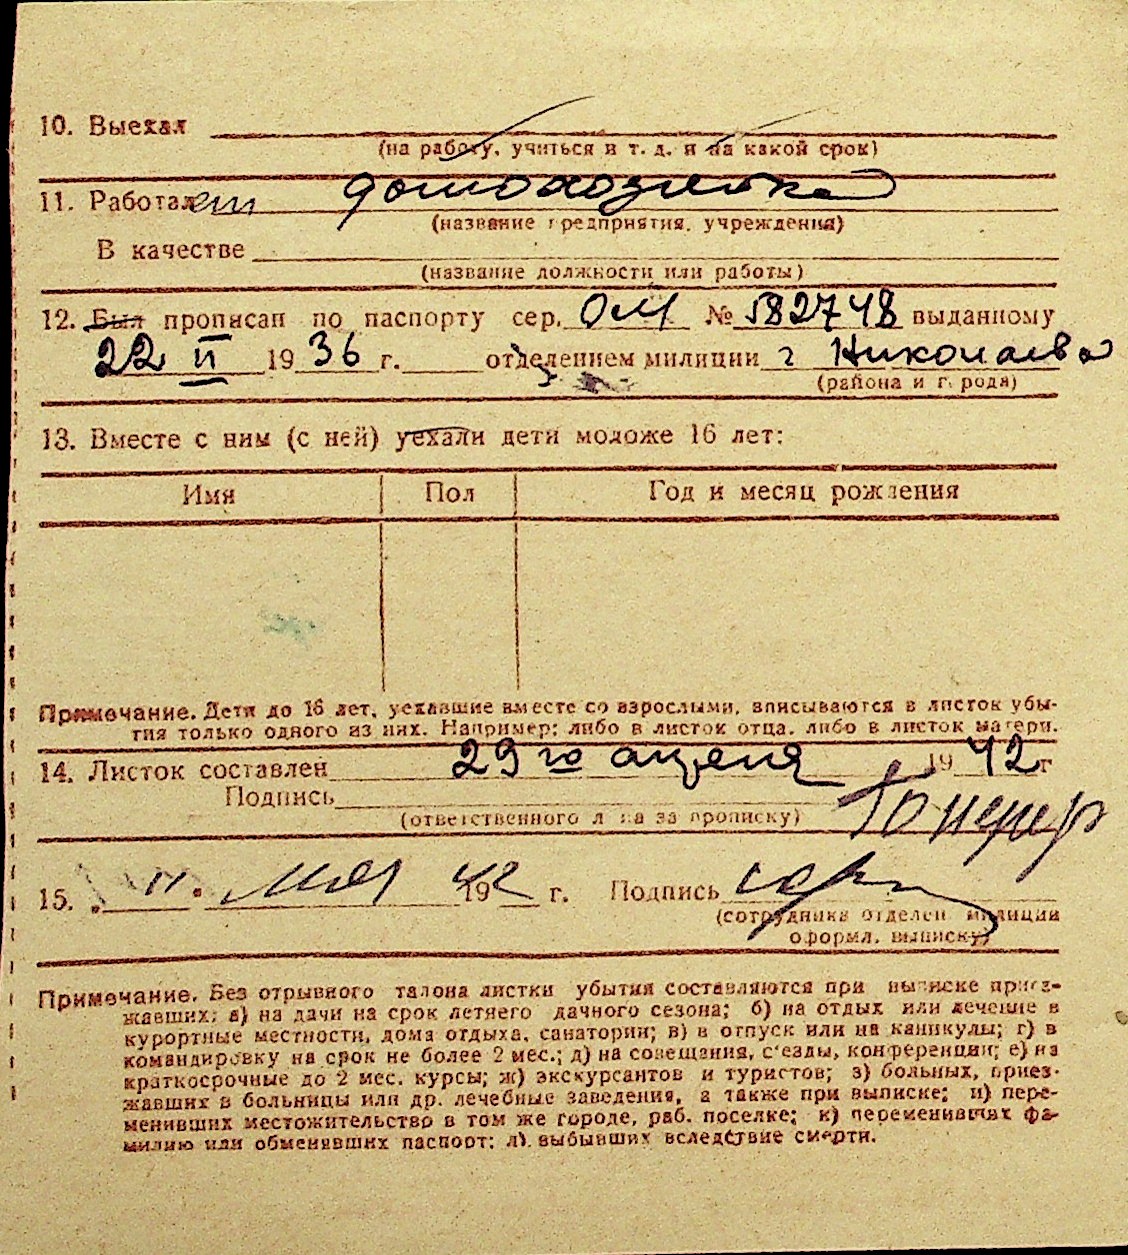 10. Выехал
(на работу, учиться и т. д. и на какой срок)
11. Работает домохозяйка
(название предприятия, учреждения)
В качестве
(название должности или работы)
12. Был прописан по паспорту сер. ОМ № 582748 выданному
22 II 1936 г. отделением милиции г Николаева
(района и города)
13. Вместе с ним (с ней) уехали дети моложе 16 лет:
Имя Пол Год и месяц рождения
Примечание. Дети до 16 лет, уехавшие вместе со взрослыми, вписываются в листок убы-
тия только одного из них. Например: либо в листок отца, либо в листок матери.
14. Листок составлен 29го апреля 1942 г
Подпись
(ответственного лица за прописку)
15. 11 мая 1942 г. Подпись
(сотрудника отделен. милиции
оформл. выписку)
Примечание. Без отрывного талона листки убытия составляются при выписке приез-
жавших: а) на дачи на срок летнего дачного сезона; б) на отдых или лечение в
курортные местности, дома отдыха, санатории; в) в отпуск или на каникулы; г) в
командировку на срок не более 2 мес.; д) на совещания, с'езды, конференции; е) на
краткосрочные до 2 мес. курсы; ж) экскурсантов и туристов; з) больных, приез-
жавших в больницы или др. лечебные заведения, а также при выписке; и) пере-
менивших местожительство в том же городе, раб. поселке; к) переменивших фа-
милию или обменявших паспорт; л) выбывших вследствие смерти.